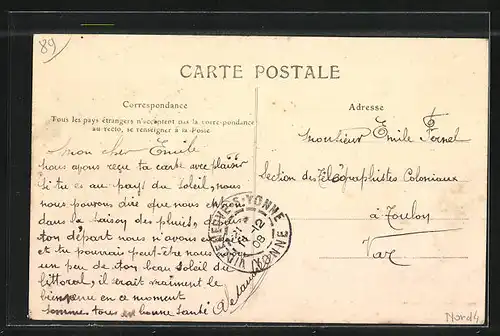 89
CARTE POSTALE
Correspondance
Tous les pays étrangers n'acceptent pas la correspondance
au recto, se renseigner à la Poste
Adresse
Mon cher Emile
nous avons reçu ta carte avec plaisir
si tu es au pays du Soleil, nous
nous pouvons dire que nous
dans la Saison des pluies, depuis
ton départ nous n'avons
et tu pouvais peut-être nous
un peu de ton beau soleil du
littoral, il serait vraiment le
bienvenu en ce moment
sommes tous en bonne santé
Monsieur Emile
Section des Télégraphistes Coloniaux
à Toulon
Var
VILLENEUVE-S-YONNE
12
08
YONNE
Nord 4